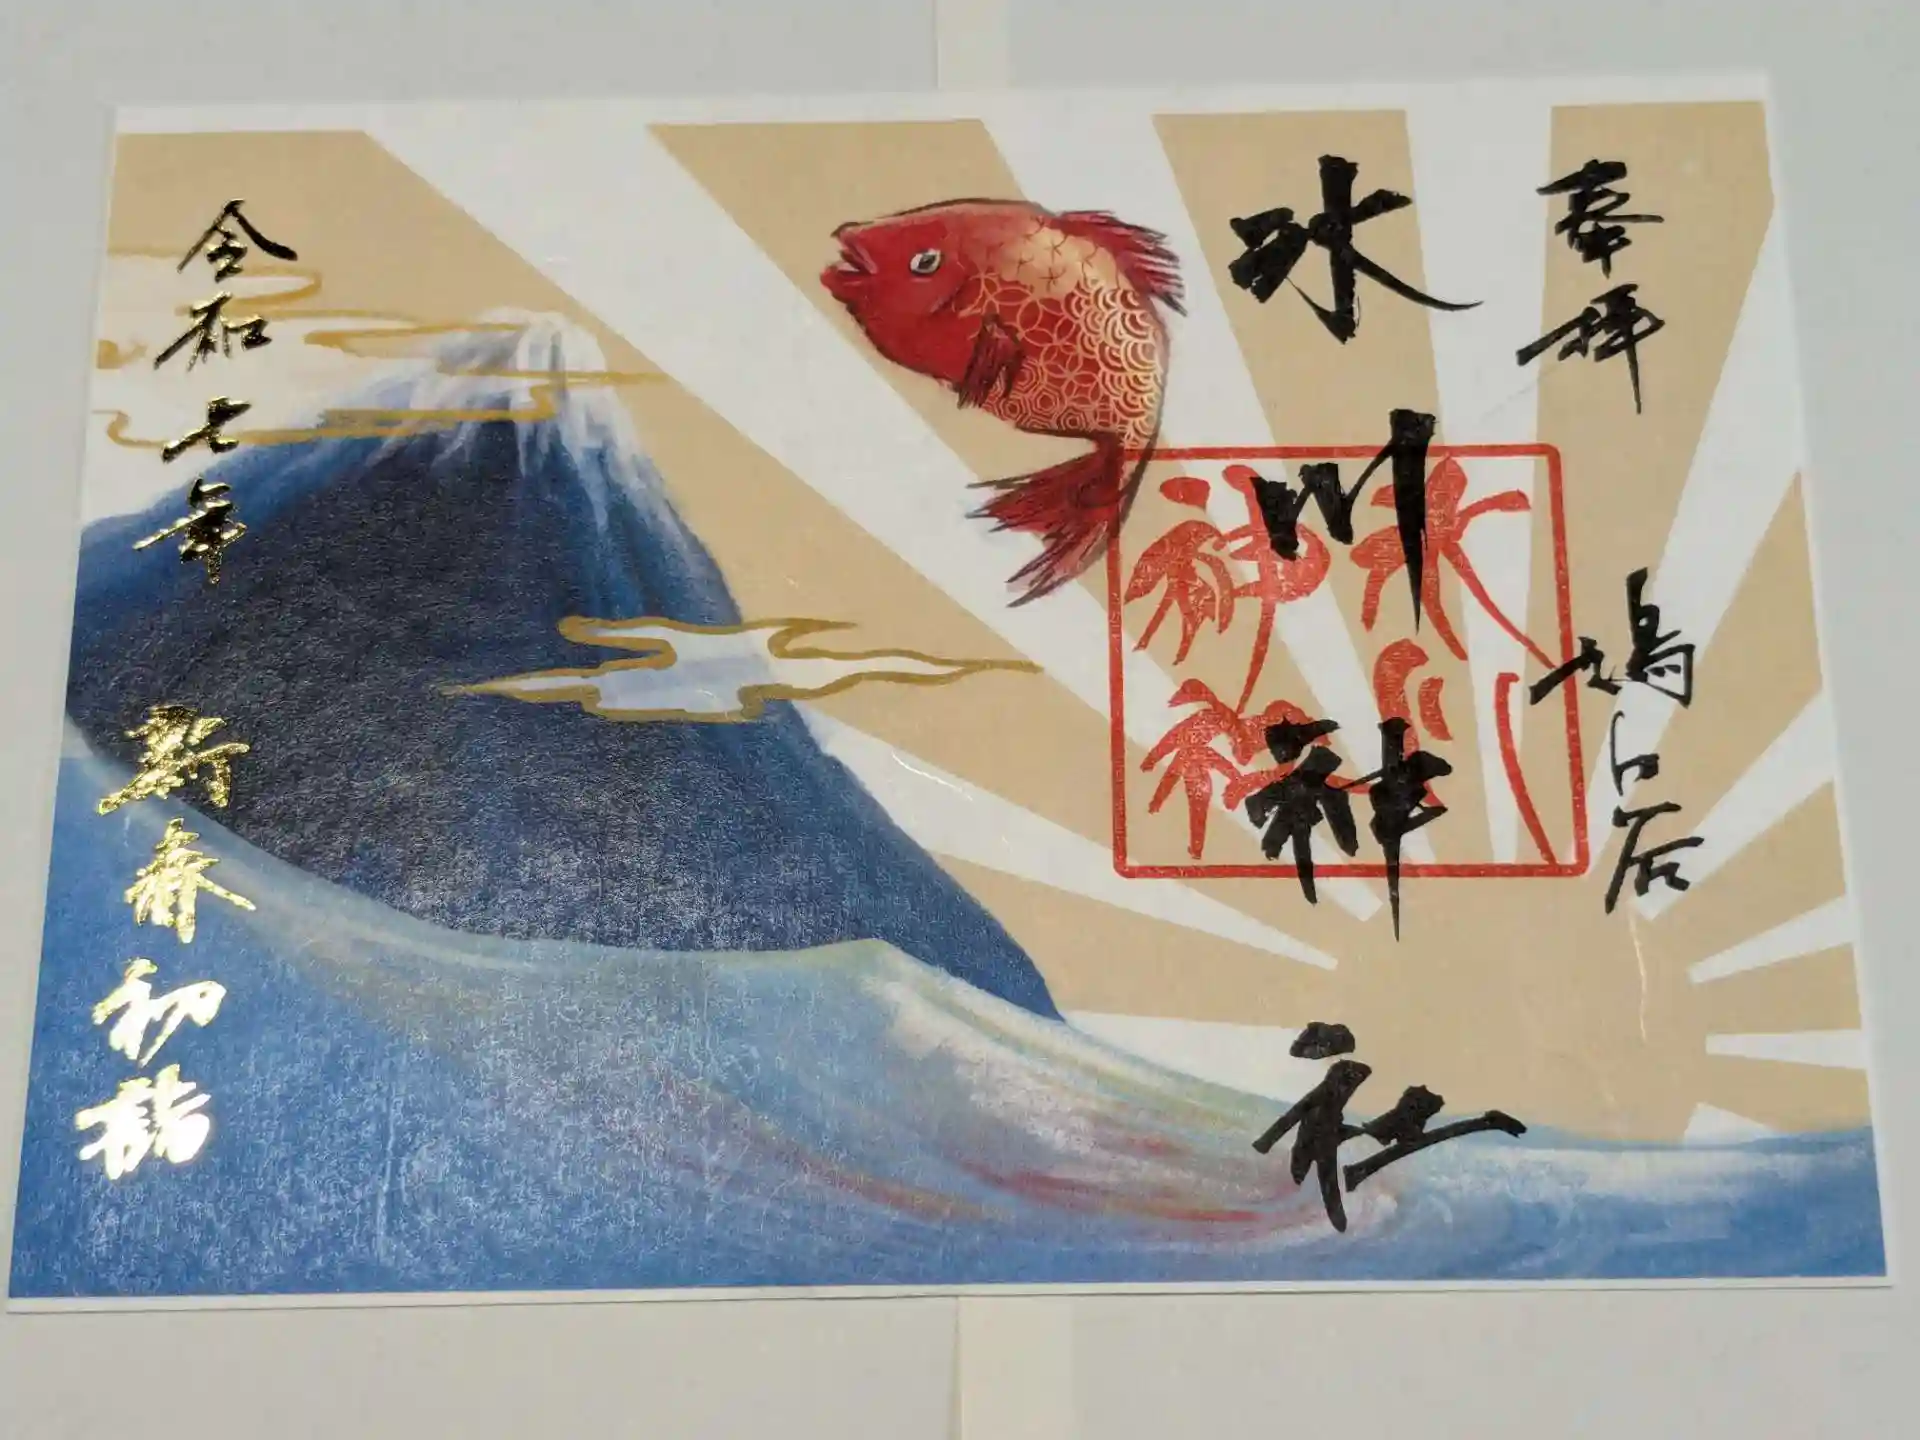 奉拝 鳩ヶ谷
氷川神社
氷川神社
令和七年 新春初詣